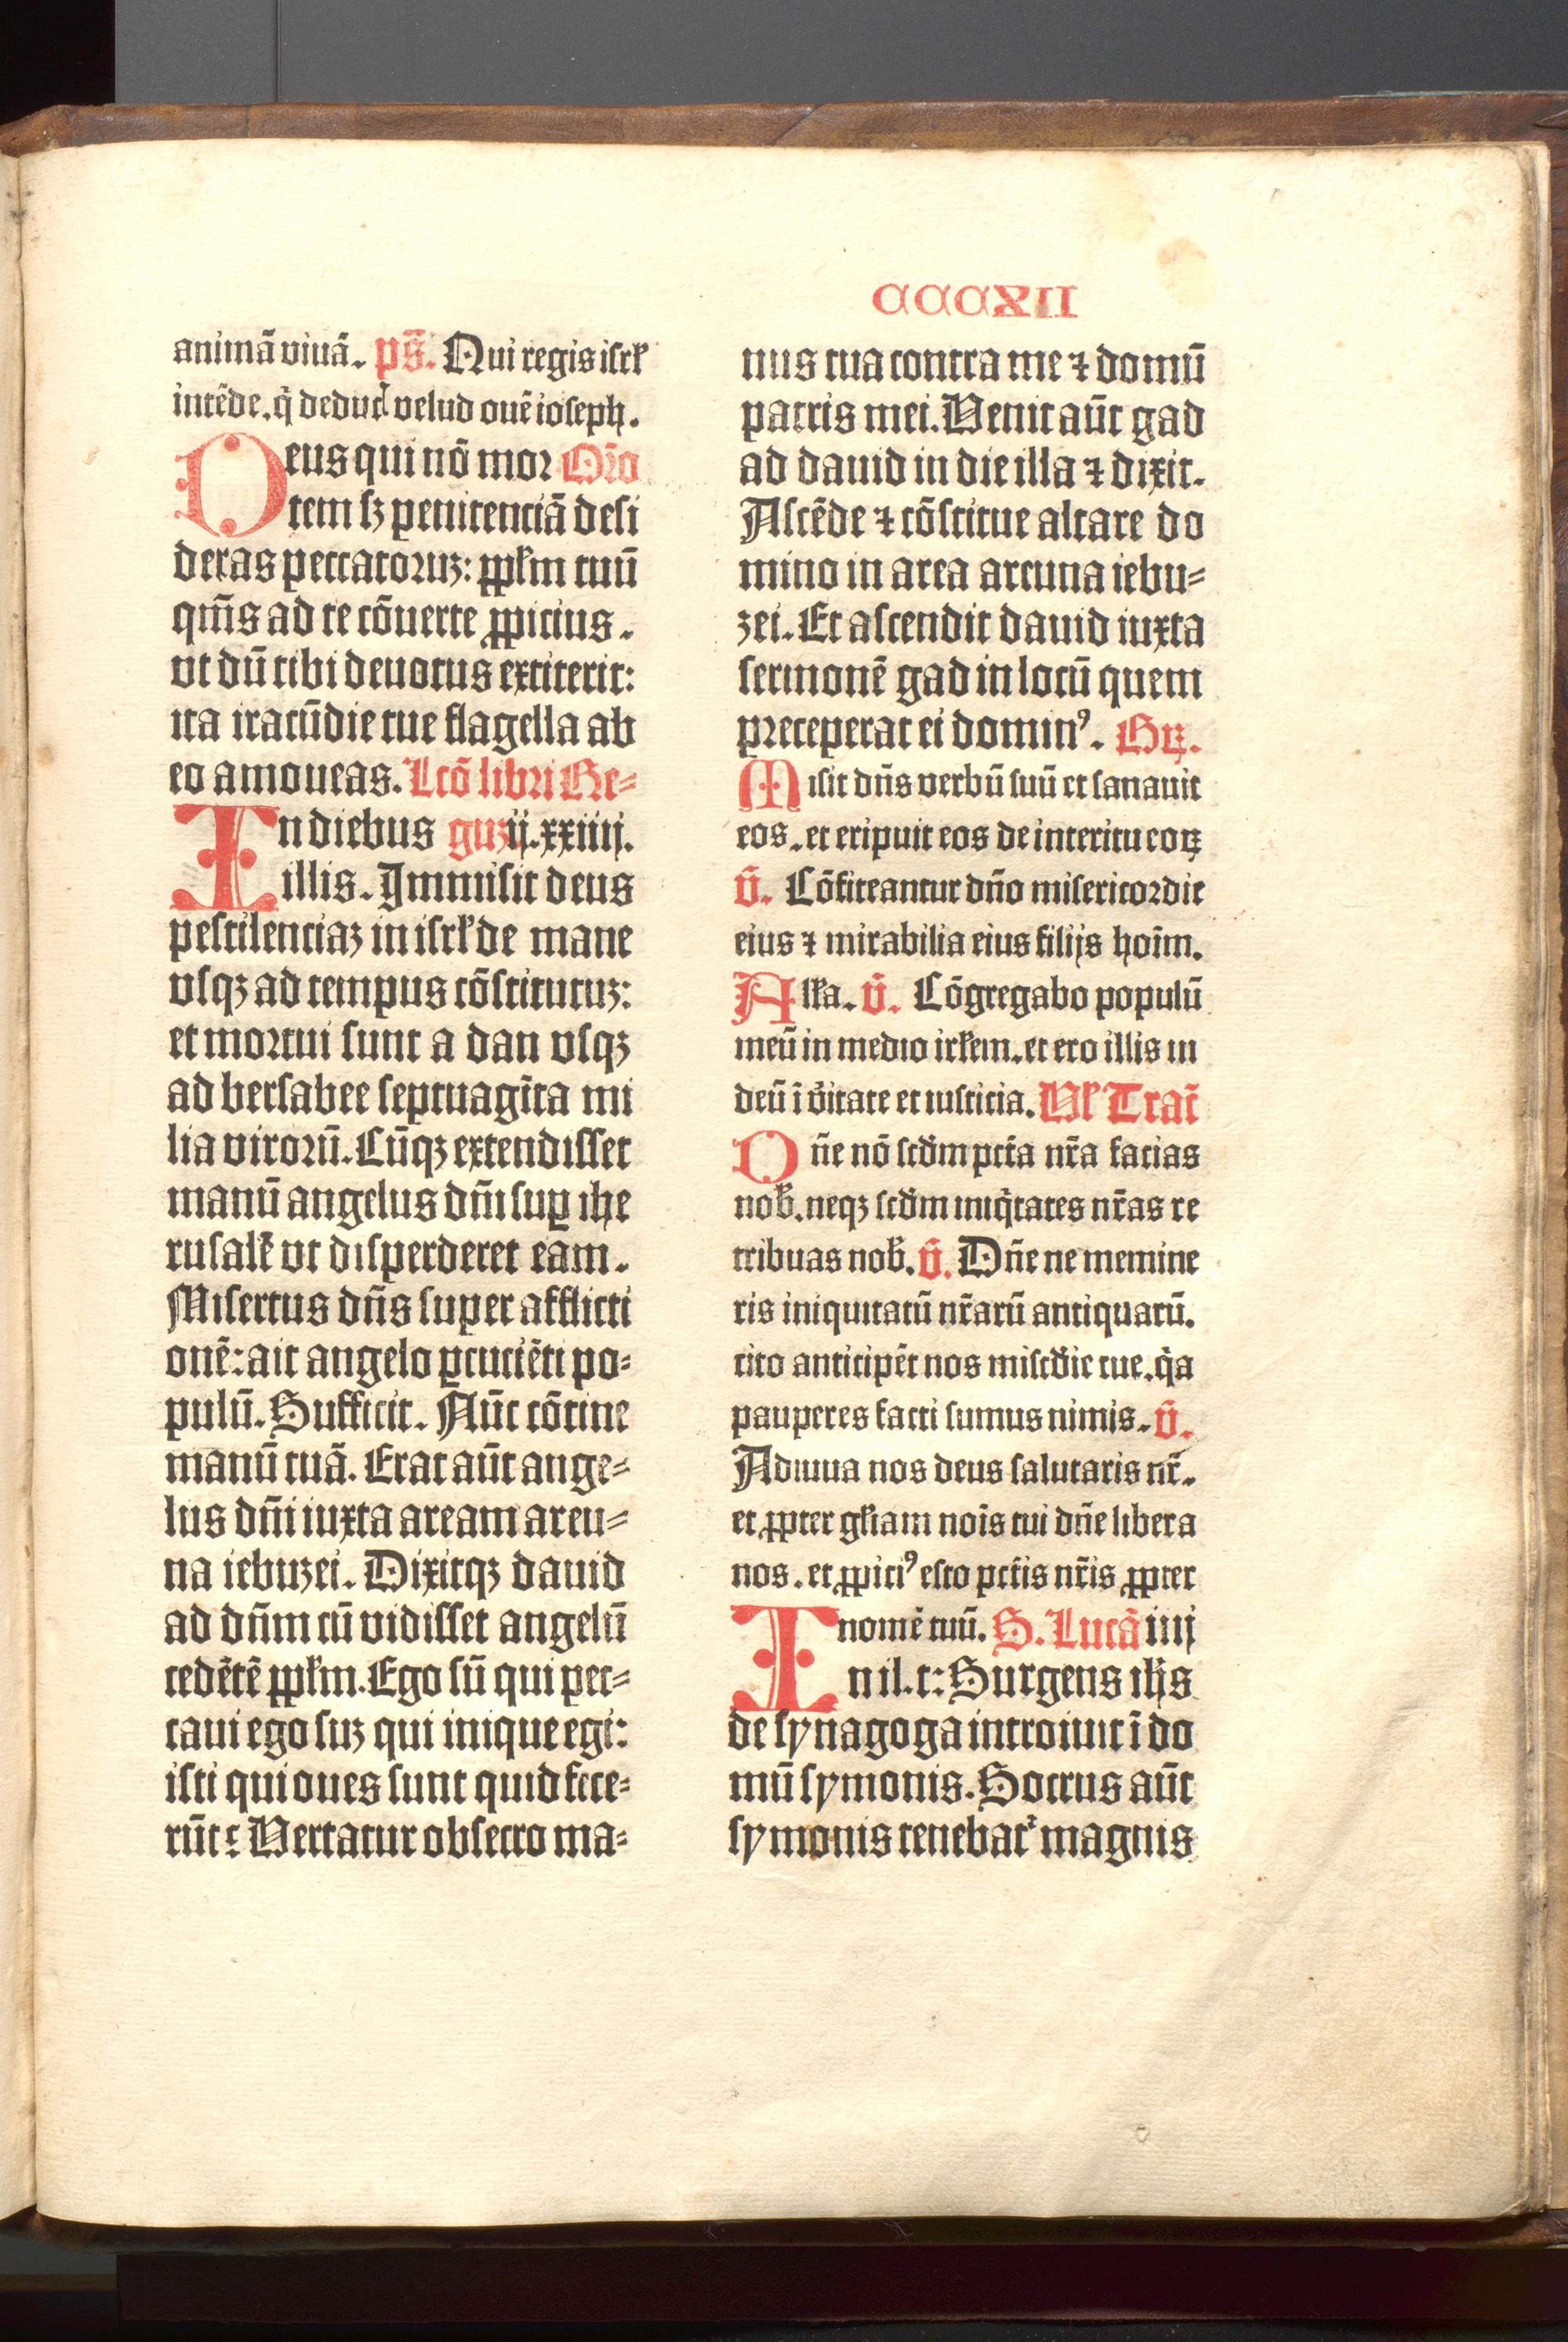 CCCXII
animã viuã. ps̃. Qui regis isrl̕
intẽde. q̇ deducͥ velud ouẽ ioseph.
Deus qui nõ mor Orõ
tem sꝫ penitenciã desi
deras peccatoruꝫ: ppl̕m tuũ
qm̃s ad te cõuerte ꝓpicius.
vt dũ tibi deuotus extiterit:
ita iracũdie tue flagella ab
eo amoueas. Lcõ libri Re-
In diebus guꝫ ii. xxiiij.
illis. Immisit deus
pestilenciaꝫ in isrl̕ de mane
vsqꝫ ad tempus cõstitutuꝫ:
et mortui sunt a dan vsqꝫ
ad bersabee septuagĩta mi
lia virorũ. Cũqꝫ extendisset
manũ angelus dñi suꝑ ihe
rusalẽ vt disperderet eam.
Misertus dñs super afflicti
onẽ: ait angelo ꝑcuciẽti po-
pulũ. Sufficit. Nũc cõtine
manũ tuã. Erat aũt ange-
lus dñi iuxta aream areu-
na iebuzei. Dixitqꝫ dauid
ad dñm cũ vidisset angelũ
cedẽtẽ ppl̕m. Ego sũ qui pec-
caui ego suꝫ qui inique egi:
isti qui oues sunt quid fece-
rũt: Vertatur obsecro ma-
nus tua contra me ⁊ domũ
patris mei. Venit aũt gad
ad dauid in die illa ⁊ dixit.
Ascẽde ⁊ cõstitue altare do
mino in area areuna iebu-
zei. Et ascendit dauid iuxta
sermonẽ gad in locũ quem
preceperat ei dominꝰ. Gꝝ.
Misit dñs verbũ suũ et sanauit
eos. et eripuit eos de interitu eoꝝ
v̄. Cõfiteantur dño misericordie
eius ⁊ mirabilia eius filijs hoĩm.
All̕a. v̄. Cõgregabo populũ
meũ in medio irl̕em. et ero illis in
deũ ĩ v̕itate et iusticia. Vl̕ Tract̃
Dñe nõ scd̕m pct̃a nr̃a facias
nob̕. neqꝫ scd̕m iniq̇tates nr̃as re
tribuas nob̕. v̄. Dñe ne memine
ris iniquitatũ nr̃arũ antiquarũ.
cito anticipẽt nos miscd̕ie tue. q̇a
pauperes facti sumus nimis. v̄.
Adiuua nos deus salutaris nr̃.
et ꝓpter gl̕iam noĩs tui dñe libera
nos. et ꝓpiciꝰ esto pct̃is nr̃is ꝓpter
nomẽ tuũ. S. Lucã iiij
In il. t: Surgens ih̕s
de synagoga introiuit ĩ do
mũ symonis. Socrus aũt
symonis tenebat᷑ magnis